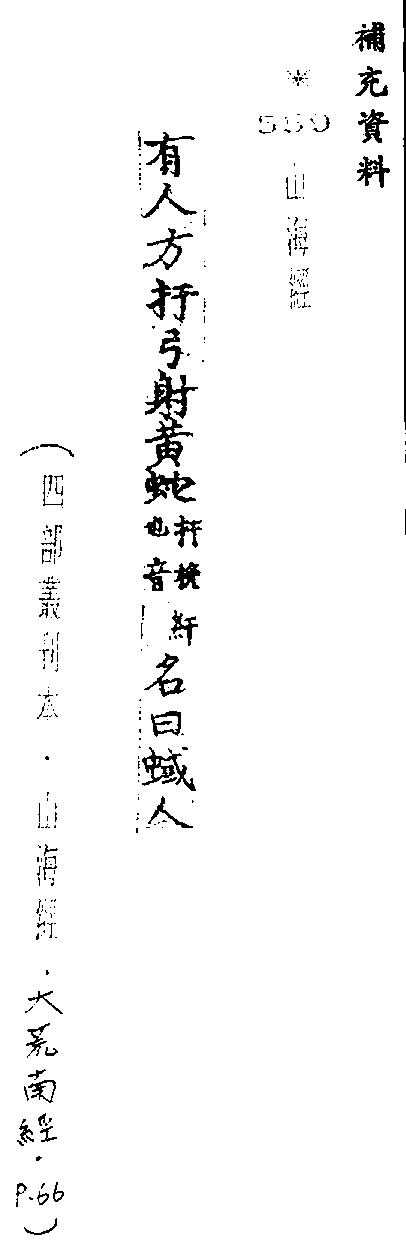 補充資料
* 559 山海經
有人方扜弓射黃蛇扜挽也音紆名曰蜮人
(四部叢刊本．山海經．大荒南經．P.66)